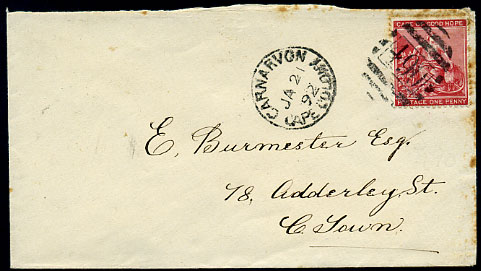 CAPE OF GOOD HOPE
POSTAGE ONE PENNY
CARNARVON
JA 21
92
CAPE COLONY
E. Burmester Esq.
78, Adderley St.
C. Town.